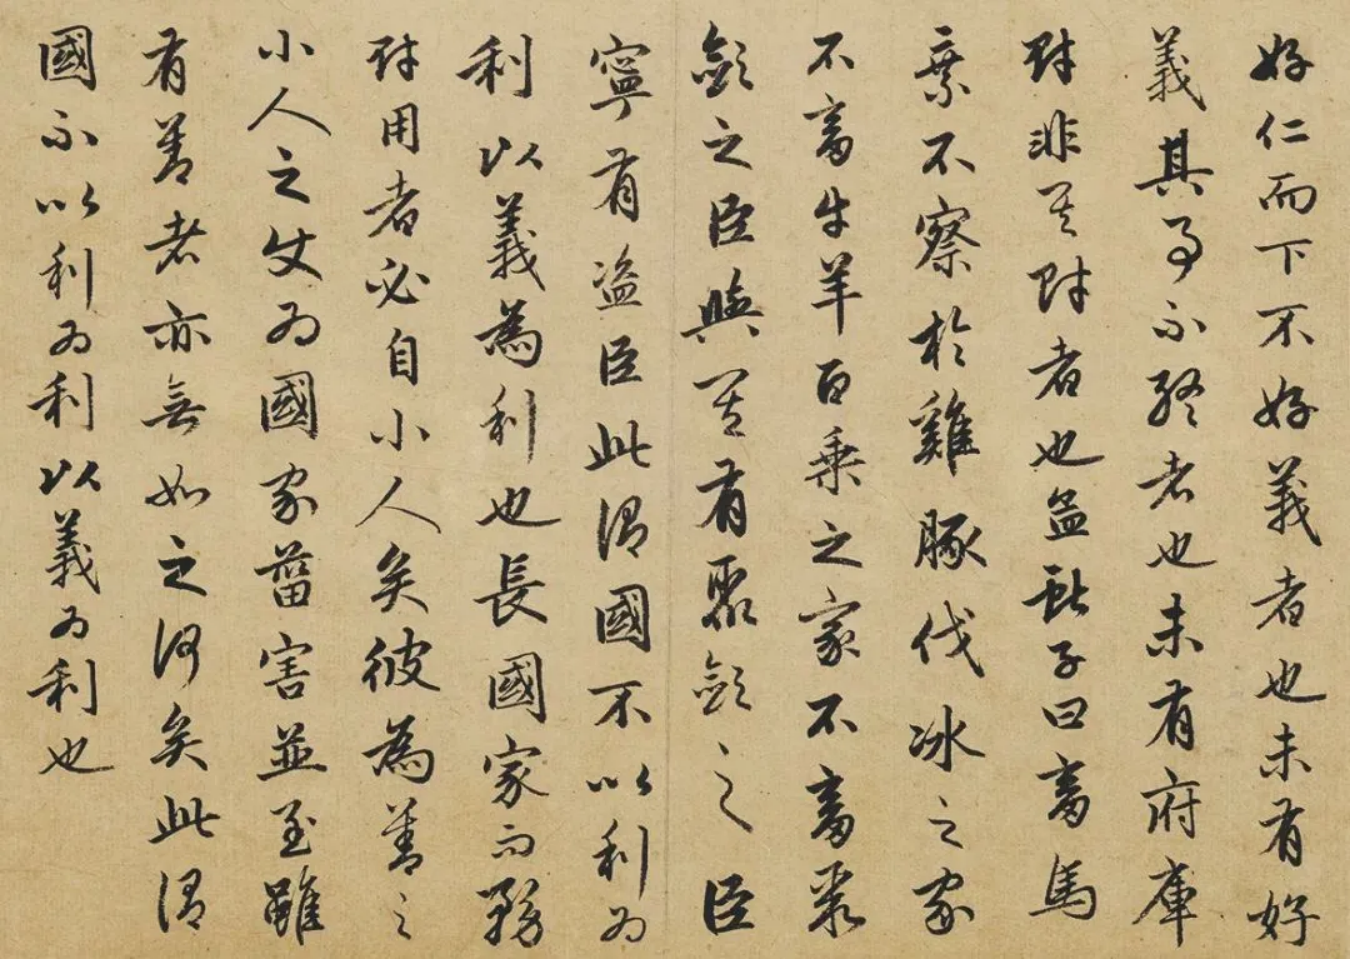 好仁而下不好義者也未有好
義其事不終者也未有府庫
財非其財者也孟獻子曰畜馬
乘不察於雞豚伐冰之家
不畜牛羊百乘之家不畜聚
斂之臣與其有聚斂之臣
寧有盜臣此謂國不以利為
利以義為利也長國家而務
財用者必自小人矣彼為善之
小人之使為國家菑害並至雖
有善者亦無如之何矣此謂
國不以利為利以義為利也